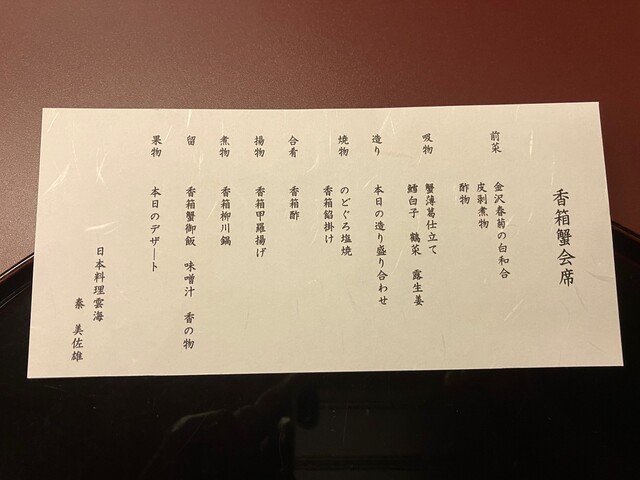 香箱蟹会席
前菜 金沢春菊の白和合
皮剥煮物
酢物
吸物 蟹薄葛仕立て
鱈白子 鶴菜 露生姜
造り 本日の造り盛り合わせ
焼物 のどぐろ塩焼
香箱餡掛け
合肴 香箱酢
揚物 香箱甲羅揚げ
煮物 香箱柳川鍋
留 香箱蟹御飯 味噌汁 香の物
果物 本日のデザート
日本料理雲海
秦 美佐雄